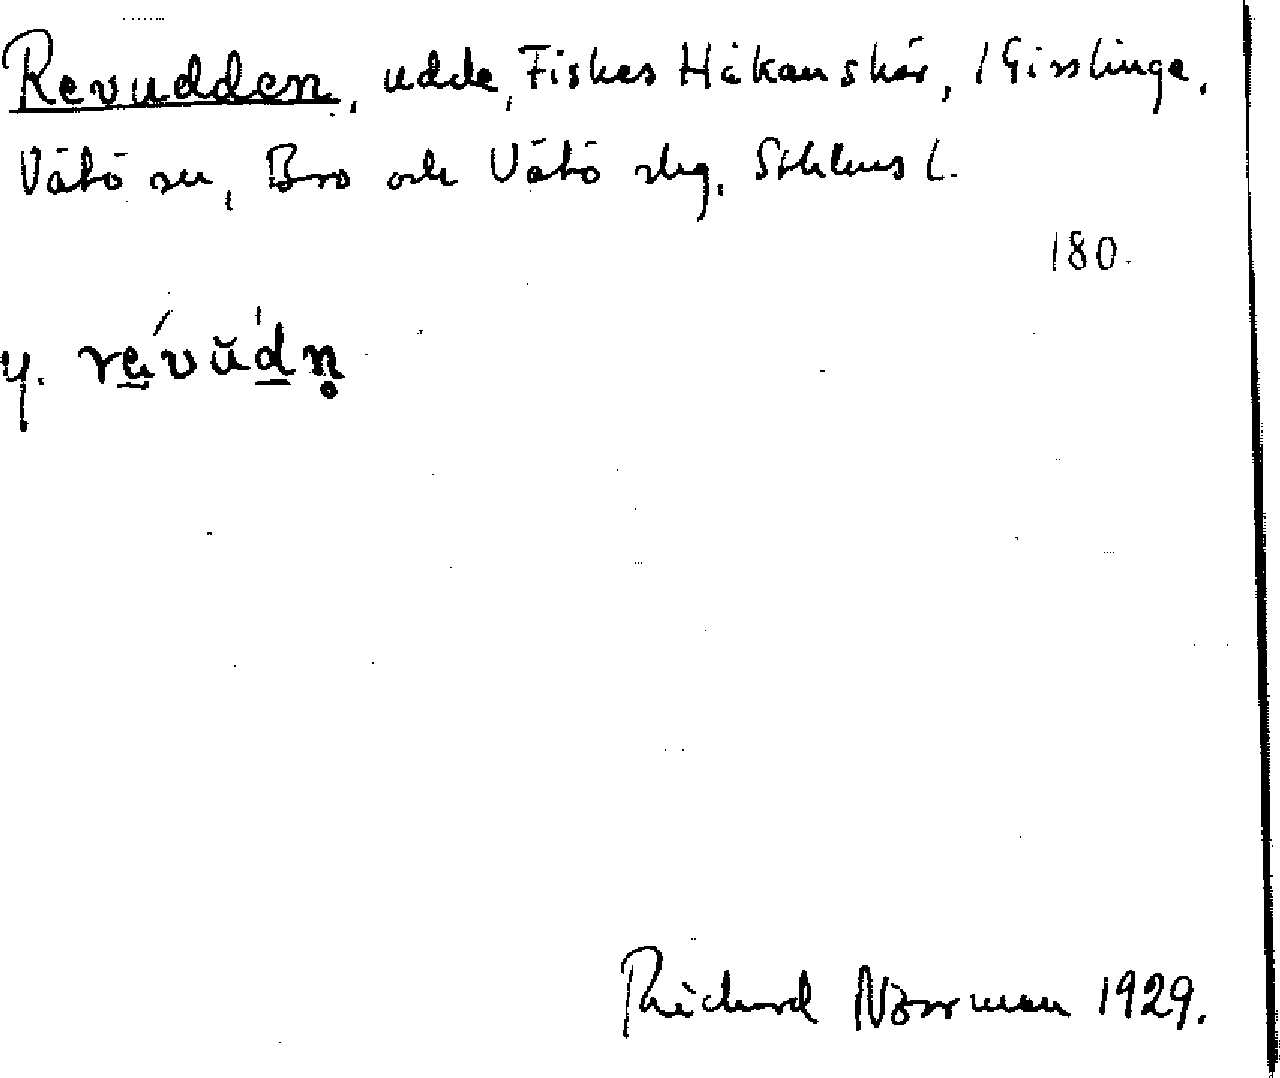 Revudden, udde, Fiskes Håkanskär, / Gisslinge,
Vätö sn, Bro och Vätö slg, Sthlms l.
180.
y. re̱´vŭ'ḏn̥
Richard Norrman 1929.